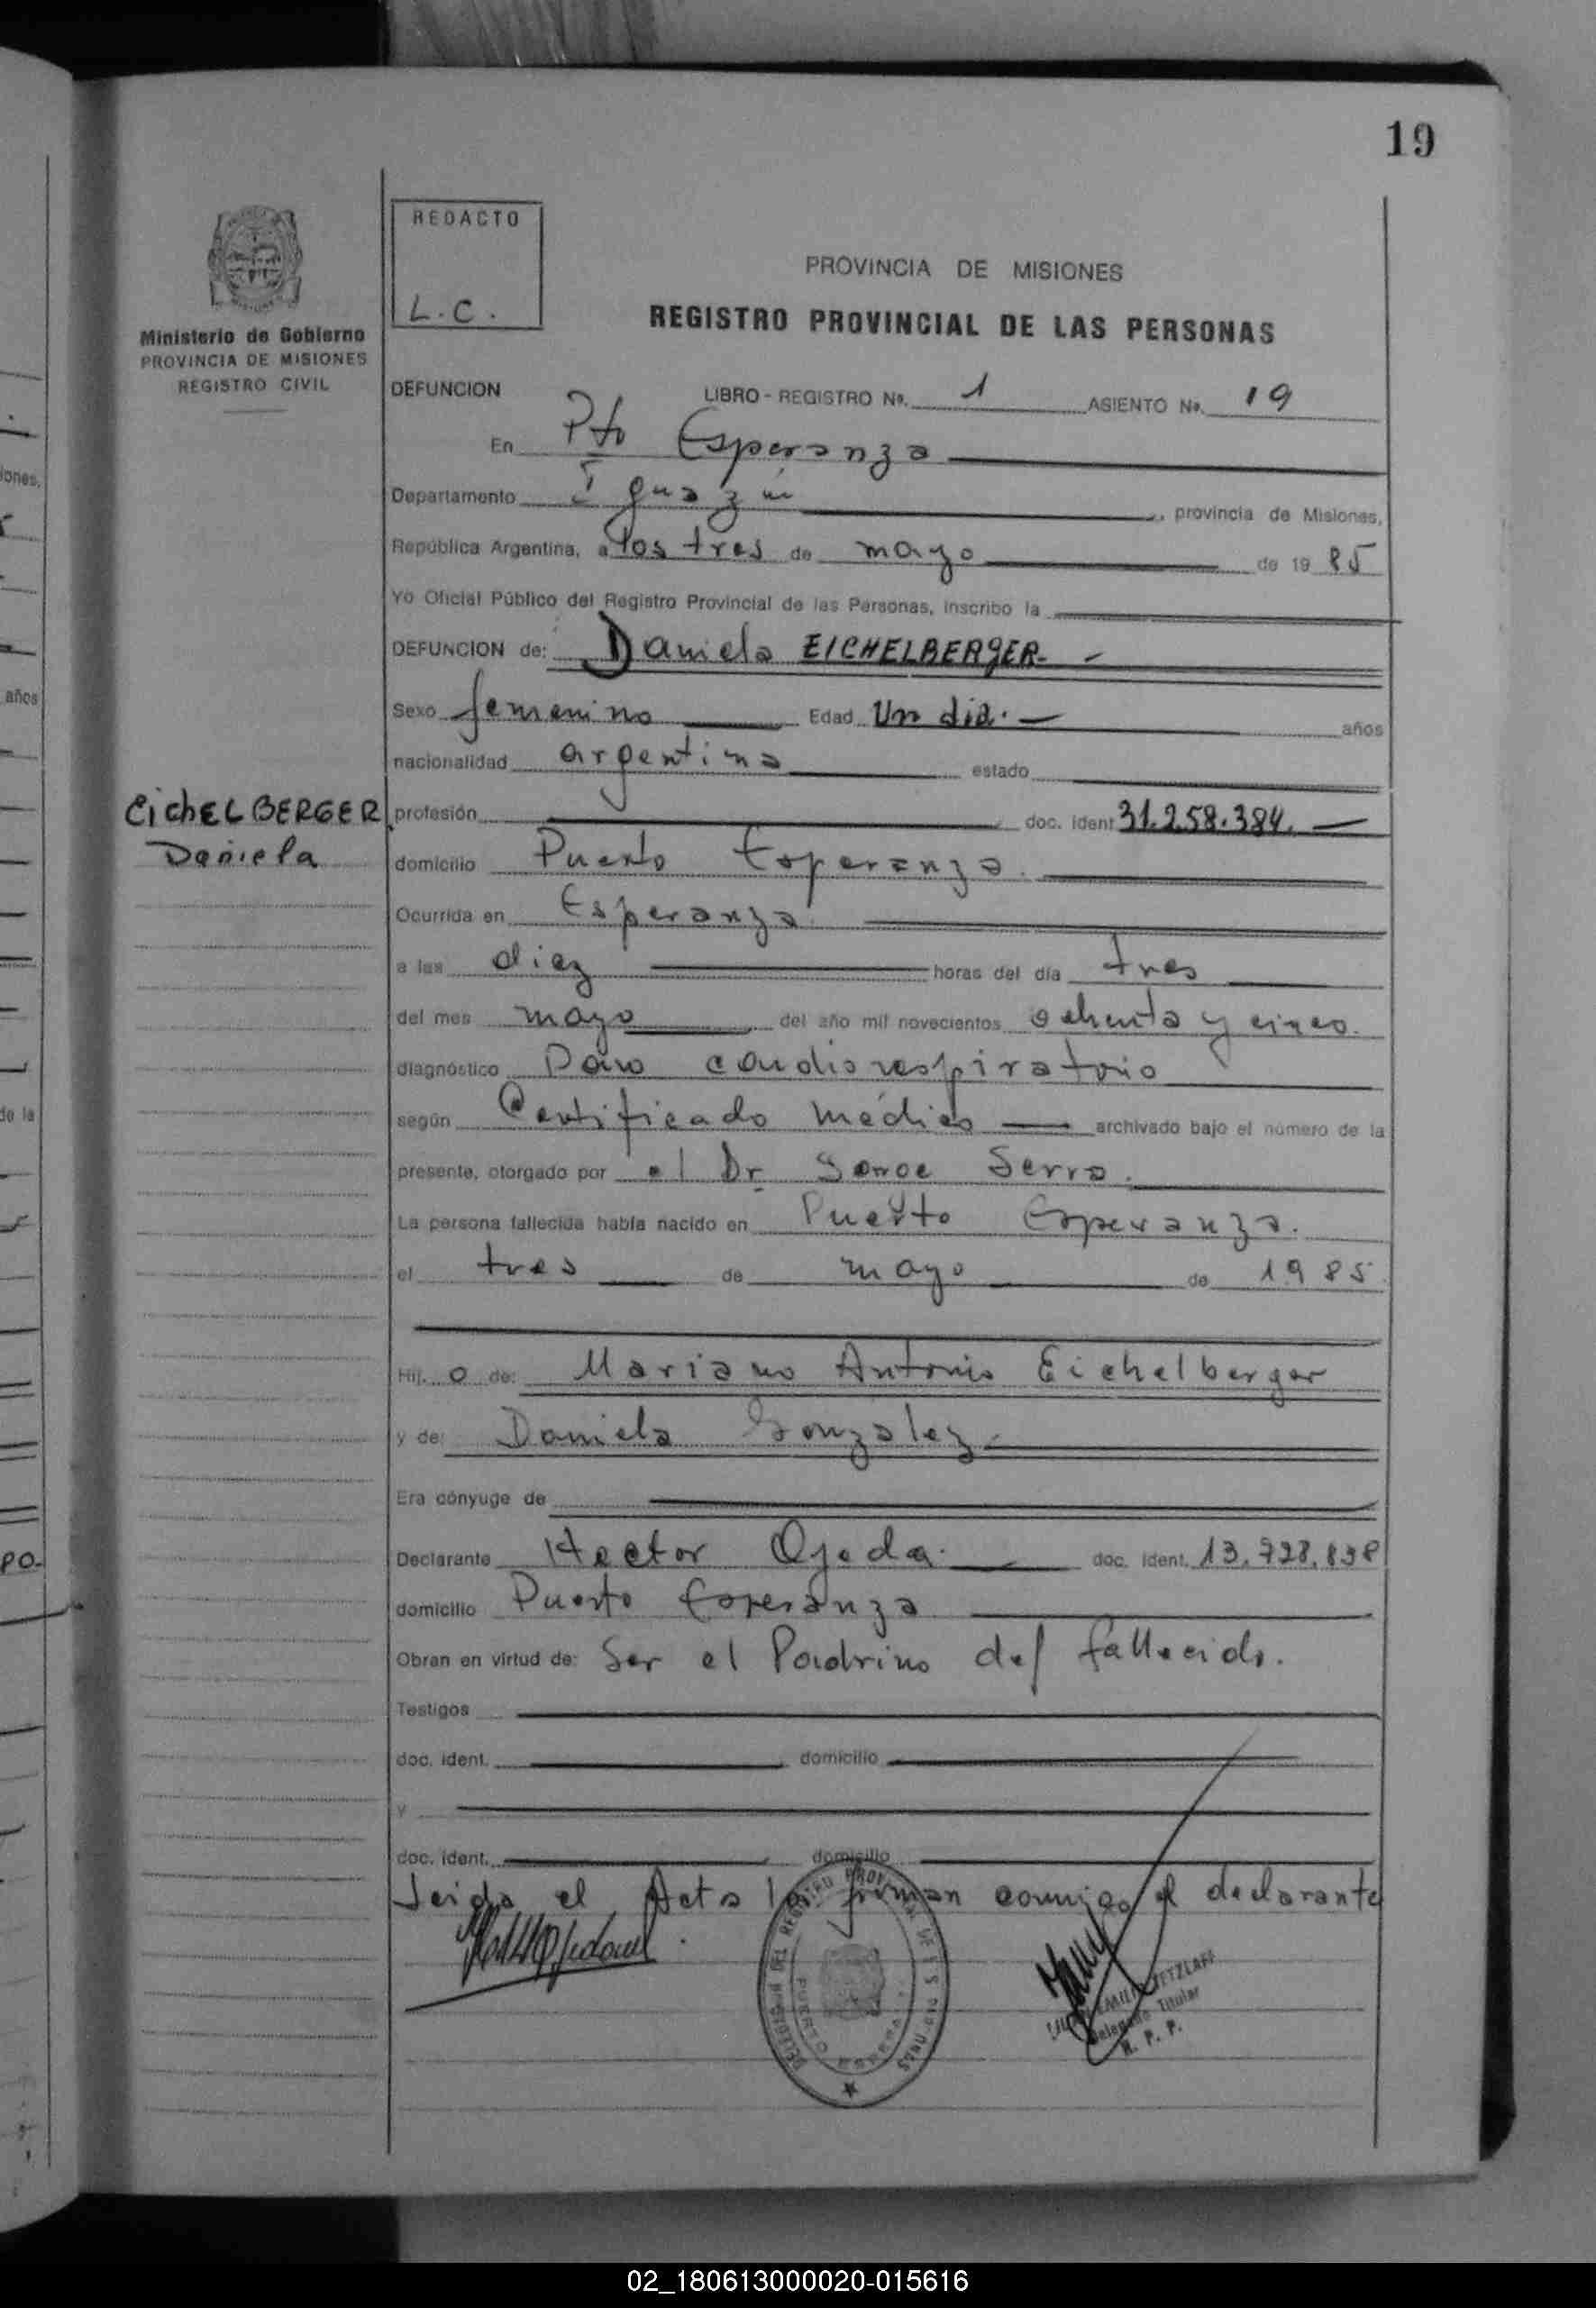 19
REDACTO
L.C.
Ministerio de Gobierno
PROVINCIA DE MISIONES
REGISTRO CIVIL
PROVINCIA DE MISIONES
REGISTRO PROVINCIAL DE LAS PERSONAS
DEFUNCION LIBRO - REGISTRO Nº. 1 ASIENTO Nº. 19
En Pto Esperanza
Departamento Iguazú, provincia de Misiones,
República Argentina, a los tres de mayo de 19 85
Yo Oficial Público del Registro Provincial de las Personas, inscribo la
DEFUNCION de: Daniela EICHELBERGER.-
Sexo femenino Edad Un dia.- años
nacionalidad argentina estado
EichELBERGER
Daniela
profesión doc. ident 31.258.384.
domicilio Puerto Esperanza.
Ocurrida en Esperanza.
a las diez horas del día tres
del mes mayo del año mil novecientos ochenta y cinco.
diagnóstico Paro cardiorespiratorio
según Certificado médico archivado bajo el número de la
presente, otorgado por el Dr. Serra.
La persona fallecida había nacido en Puerto Esperanza.
el tres de mayo de 1985
Hij o de: Mariano Antonio Eichelberger
y de: Daniela Gonzalez
Era cónyuge de
Declarante Hector Ojeda. doc. ident. 13.728.838
domicilio Puerto Esperanza
Obran en virtud de: Ser el Padrino del fallecido.
Testigos
doc. ident. domicilio
y
doc. ident. domicilio
Leida el Acta la firman conmigo el declarante
DEL REGISTRO PROVINCIAL DE LAS PERSONAS
PUERTO
EMILIO
Delegado Titular
R. P. P.
iones,
años
de la
PO-
02_180613000020-015616